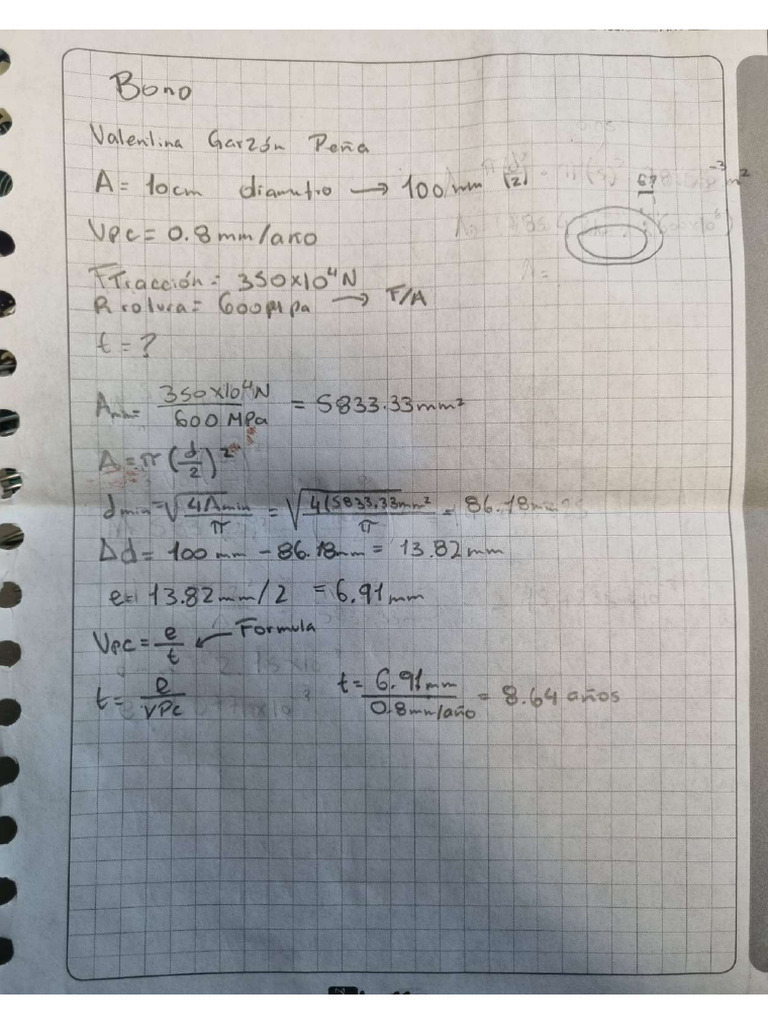 Bono
Valentina Garzón Peña
A = 10cm diametro → 100mm
Vpc = 0.8mm/año
FTracción = 350x10⁴N
R rotura = 600Mpa → F/A
t = ?
e?
Amin = 350x10⁴N / 600 MPa = 5833.33mm²
A = π(d/2)²
dmin = √(4Amin/π) = √(4(5833.33mm²/π) = 86.18mm
Δd = 100mm - 86.18mm = 13.82mm
e = 13.82mm/2 = 6.91mm
Vpc = e/t ← Formula
t = e/vPc t = 6.91mm / 0.8mm/año = 8.64 años